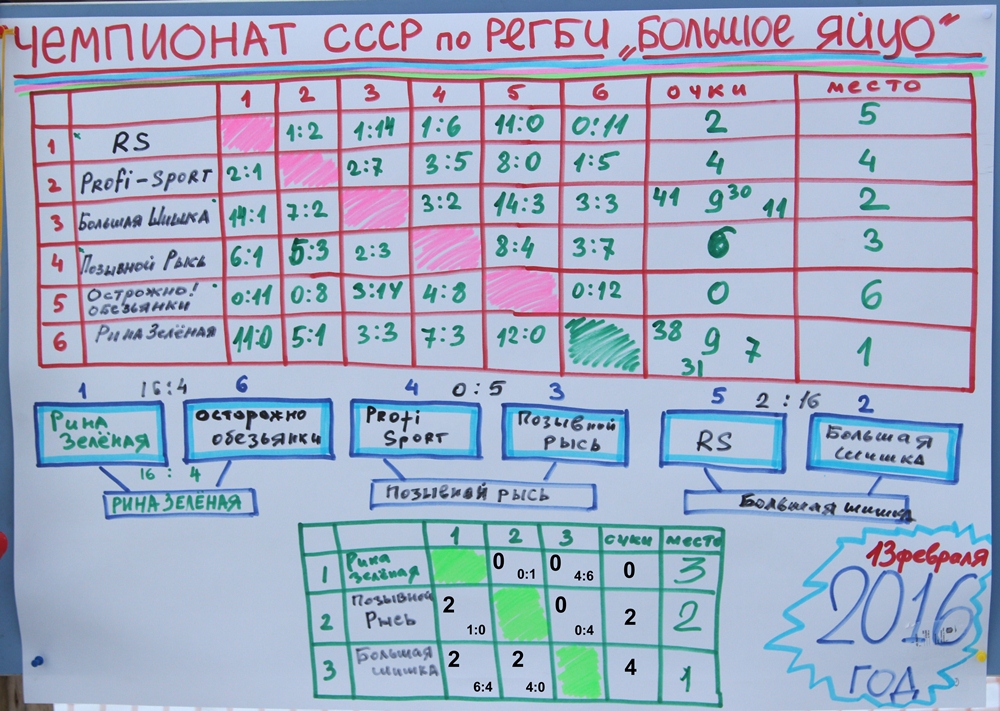 ЧЕМПИОНАТ СССР по РЕГБИ „БОЛЬШОЕ ЯЙЦО"
1 2 3 4 5 6 ОЧКИ МЕСТО
1 RS 1:2 1:14 1:6 11:0 0:11 2 5
2 PROFI-SPORT 2:1 2:7 3:5 8:0 1:5 4 4
3 БОЛЬШАЯ ШИШКА 14:1 7:2 3:2 14:3 3:3 41 9 30 11 2
4 ПОЗЫВНОЙ РЫСЬ 6:1 5:3 2:3 8:4 3:7 6 3
5 ОСТРОЖНО! ОБЕЗЬЯНКИ 0:11 0:8 3:14 4:8 0:12 0 6
6 РИНА ЗЕЛЁНАЯ 11:0 5:1 3:3 7:3 12:0 38 9 31 7 1
1 16:4 6 4 0:5 3 5 2:16 2
РИНА ЗЕЛЁНАЯ
ОСТОРОЖНО ОБЕЗЬЯНКИ
PROFI SPORT
ПОЗЫВНОЙ РЫСЬ
RS
БОЛЬШАЯ ШИШКА
16 : 4
РИНА ЗЕЛЁНАЯ
ПОЗЫВНОЙ РЫСЬ
БОЛЬШАЯ ШИШКА
1 2 3 ОЧКИ МЕСТО
1 РИНА ЗЕЛЁНАЯ 0 0:1 0 4:6 0 3
2 ПОЗЫВНОЙ РЫСЬ 2 1:0 0 0:4 2 2
3 БОЛЬШАЯ ШИШКА 2 6:4 2 4:0 4 1
13 февраля
2016
ГОД